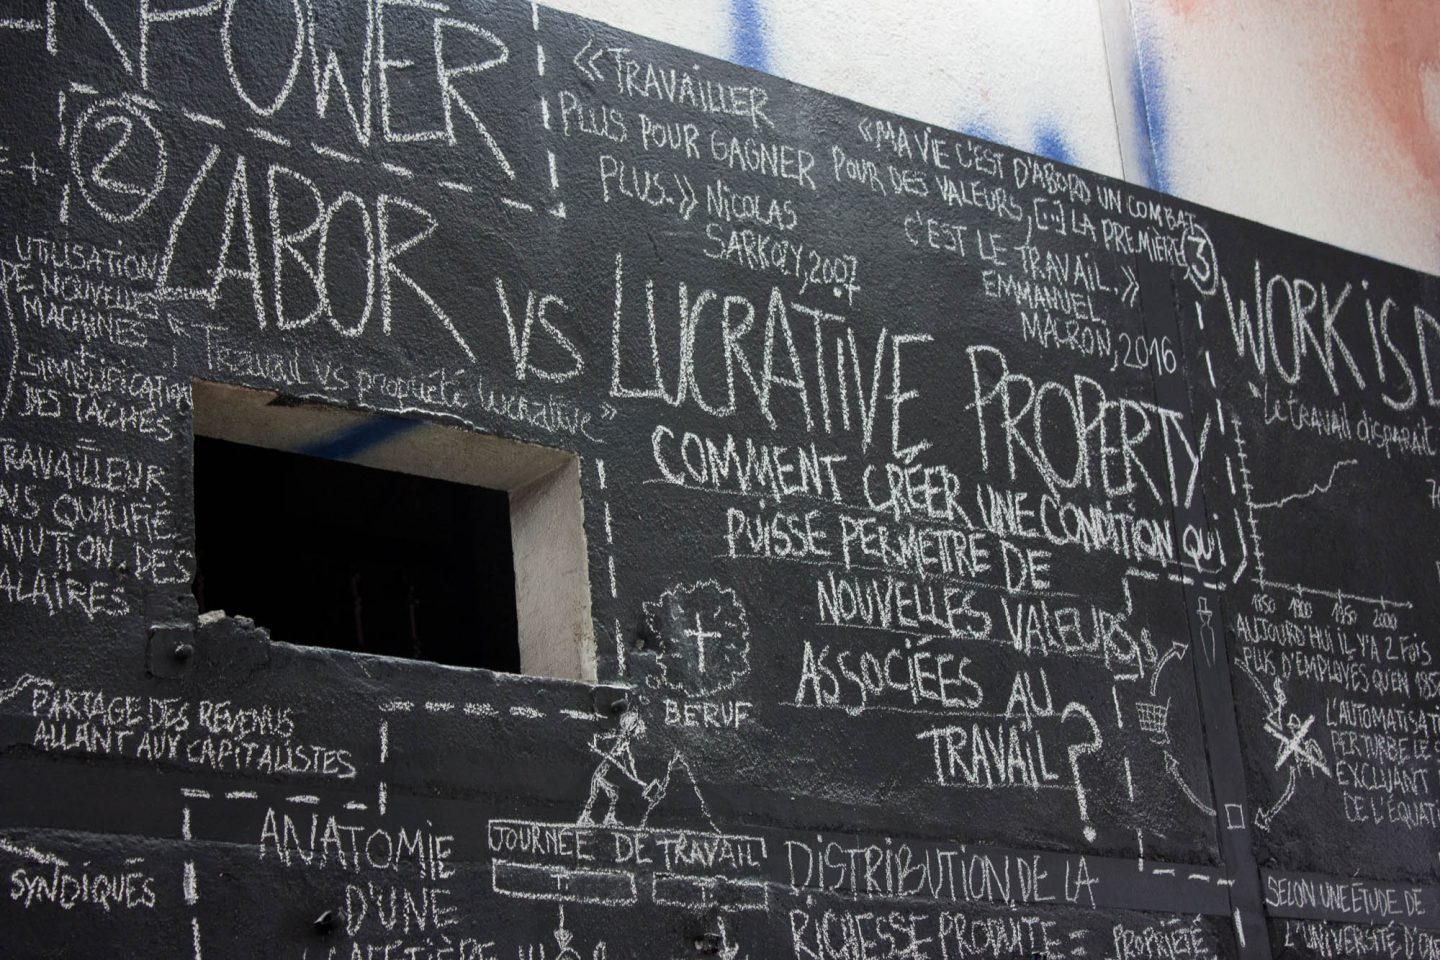 POWER
2
LABOR VS LUCRATIVE PROPERTY
Travail vs propriété lucrative »
UTILISATION
DE NOUVELLES
MACHINES
+
SIMPLIFICATION
DES TÂCHES
TRAVAILLEUR
QUALIFIÉ
DES
PARTAGE DES REVENUS
ALLANT AUX CAPITALISTES
SYNDIQUÉS
« TRAVAILLER
PLUS POUR GAGNER
PLUS. » NICOLAS
SARKOZY, 2007
« MA VIE C'EST D'ABORD UN COMBAT
POUR DES VALEURS, [...] LA PREMIÈRE,
C'EST LE TRAVAIL. »
EMMANUEL
MACRON, 2016
COMMENT CRÉER UNE CONDITION QUI
PUISSE PERMETTRE DE
NOUVELLES VALEURS
ASSOCIÉES AU
TRAVAIL ?
BERUF
JOURNÉE DE TRAVAIL
T. T.
ANATOMIE
D'UNE
DISTRIBUTION DE LA
RICHESSE PRODUITE =
PROPRIÉTÉ
3
WORK IS
Le travail disparait
1850 1900 1950 2000
AUJOURD'HUI IL Y A 2 FOIS
PLUS D'EMPLOYÉS QU'EN
PERTURBE LE
EXCLUANT
DE
SELON UNE ÉTUDE DE
L'UNIVERSITÉ